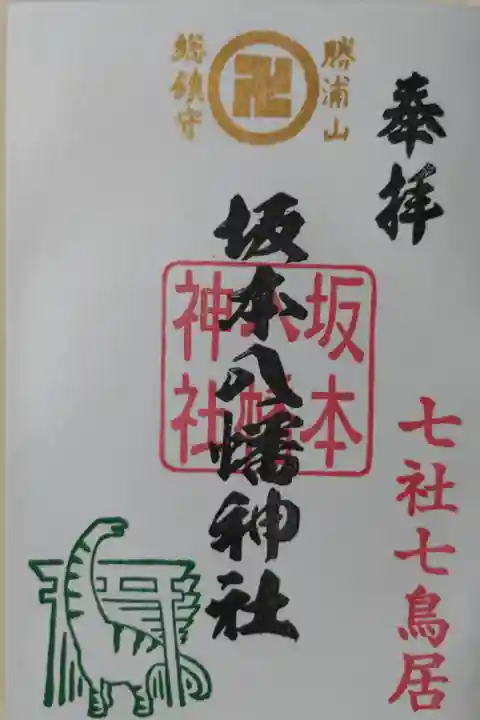 奉拝
勝浦山
総鎮守
坂本八幡神社
坂本
八幡
神社
七社七鳥居